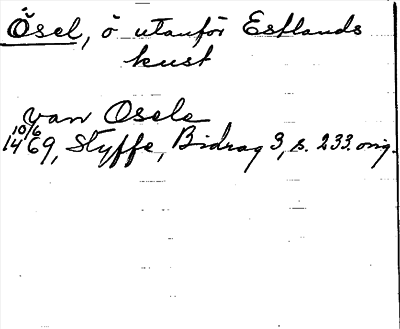 Ösel, ö utanför Estlands
kust
van Osele
10/6
1469, Styffe, Bidrag 3, s. 233. orig.